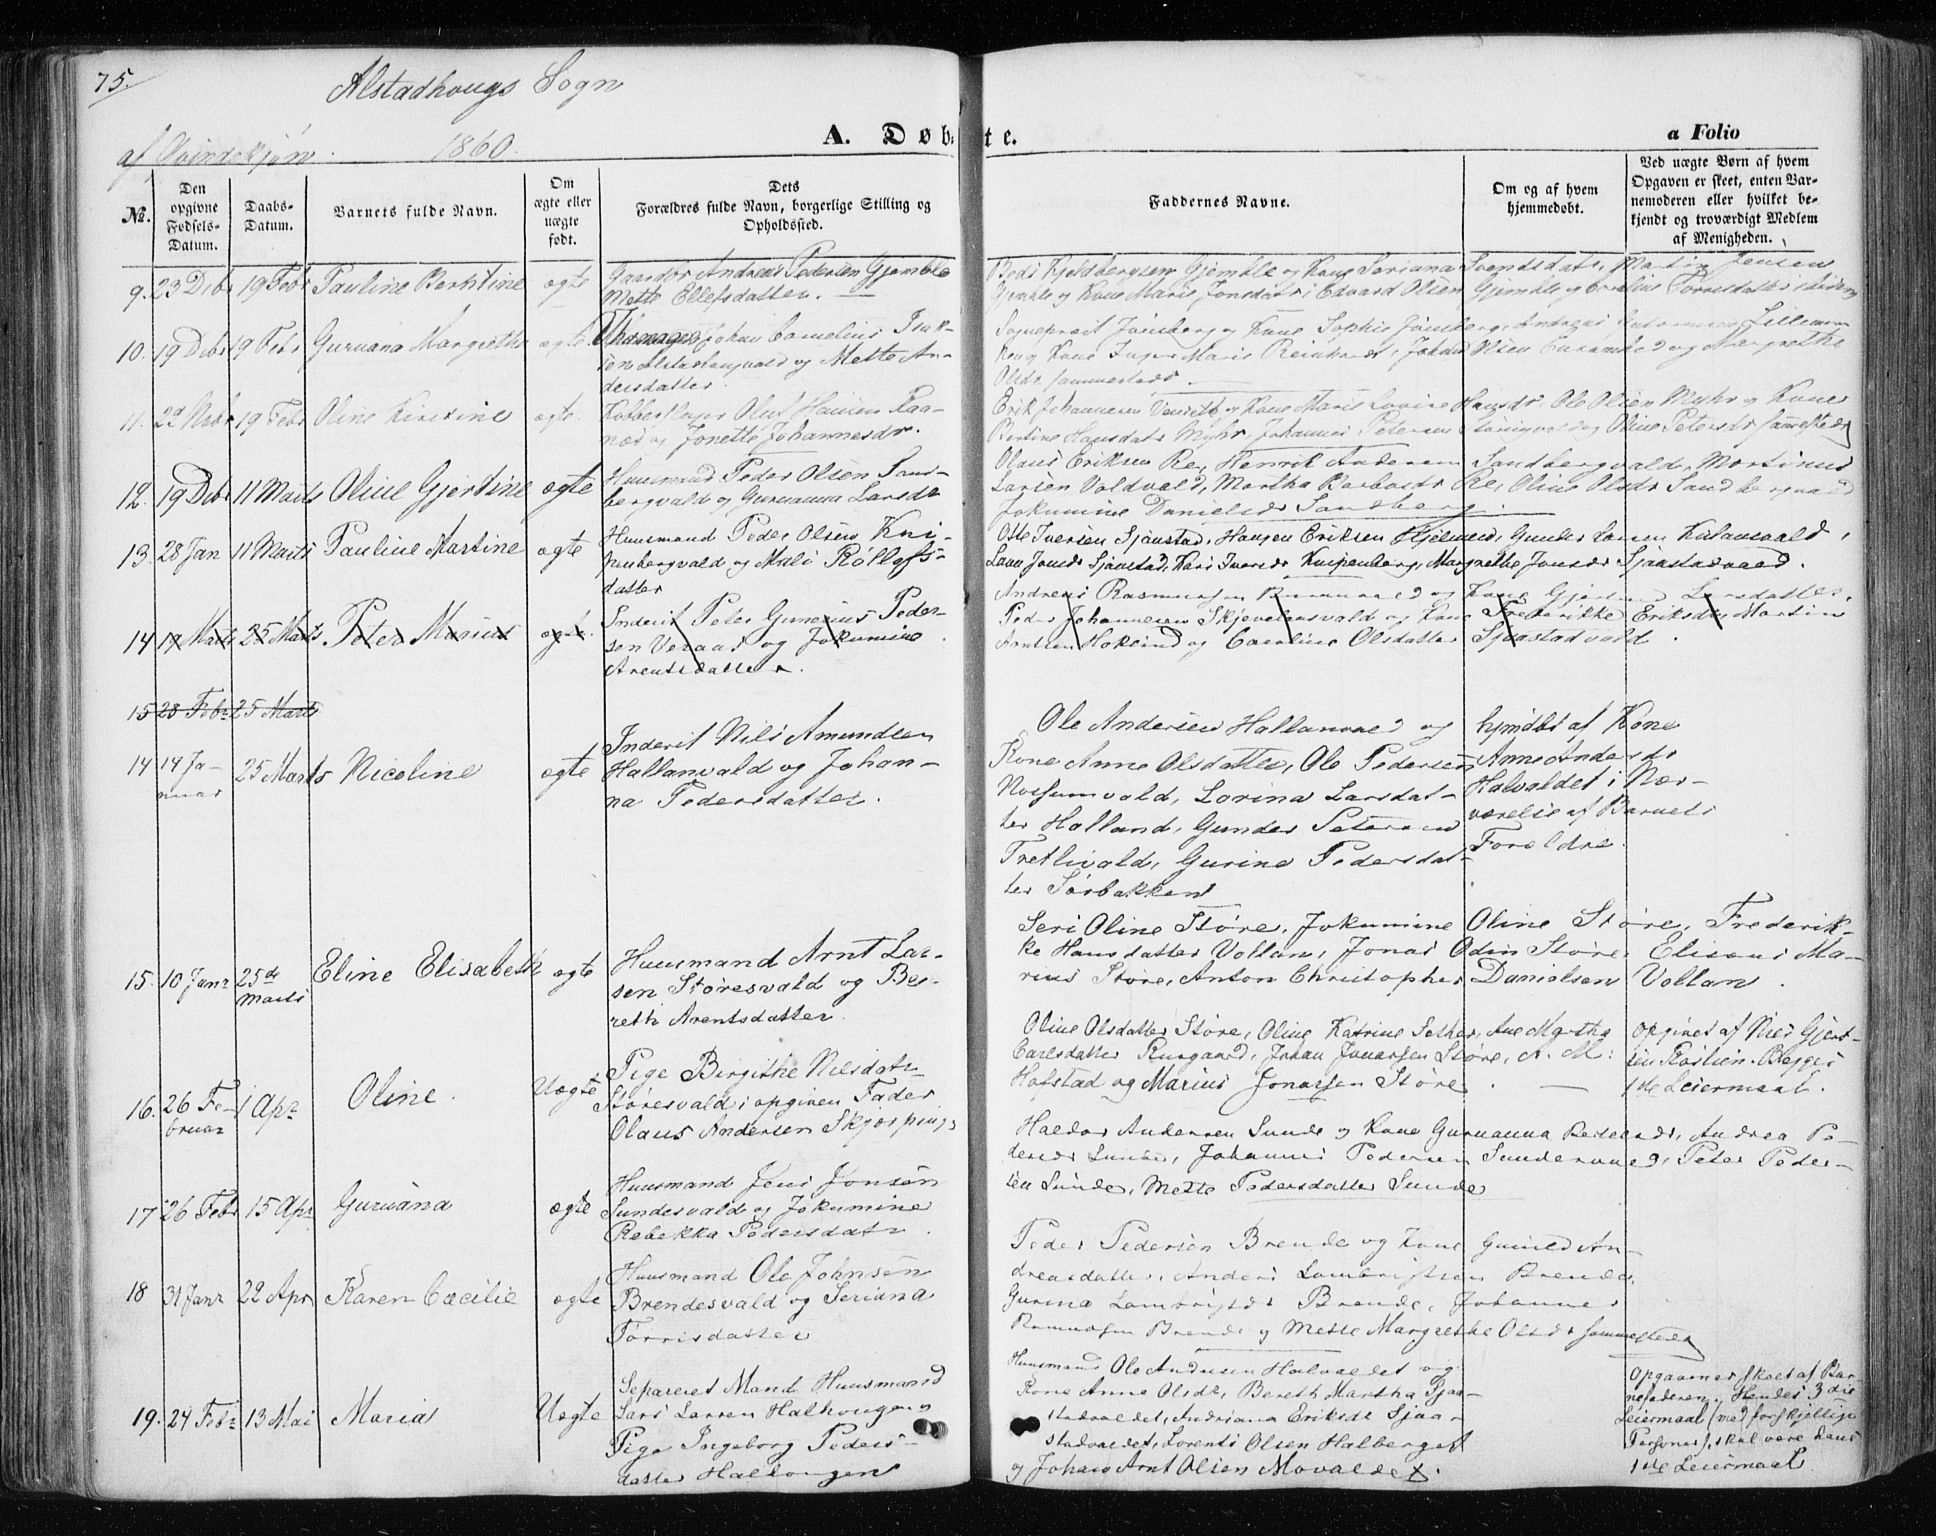 75.
Alstadhougs Sogn
af Qvindekjøn. 1860.
A. Døbte.
a Folio
No.
Den opgivne Fødsels-Datum.
Daabs-Datum.
Barnets fulde Navn.
Om ægte eller uægte født.
Dets Forældres fulde Navn, borgerlige Stilling og Opholdssted.
Faddernes Navne.
Om og af hvem hjemmedøbt.
Ved uægte Børn af hvem Opgaven er skeet, enten Barnemoderen eller hvilket bekjendt og troværdigt Medlem af Menigheden.
9. 23 Debr 19 Febr Pauline Berntine ægte
Gaardbr Andreas Pedersen Gjemble
Mette Ellefsdatter.
Gjemble og Kone Seriana Svendsdatr, Martin Jensen
Gjemble og Kone Maris Jonsdatr, Edvard Olsen Gjemble
10. 19 Debr 19 Febr Guruana Margrethe ægte
Johan Cornelius Isak-
sen Alstadhaugvald og Mette An-
dersdatter
Sognepræst Jønsberg og Kone Sophie Jønsberg, Andreas
og Kone Inger Maria Reinhardt, Johan Olsen og Margrethe
Olsdr sammesteds
11. 29 Novbr 19 Febr Oline Kirstine ægte
Kobberslager Oluf Hansen Raa-
næs og Jonette Johannesdr.
Erik Johannesen og Kone Maris Lovise Hansdr, Ole Olsen Myhr og Kone
Bertine Hansdatr Myhr, Johannes Petersen og Oline Petersdr sammesteds
12. 19 Debr 11 Marts Oline Gjertine ægte
Huusmand Peder Olsen Sand-
bergvald og Guruanna Larsdr
Olaus Eriksen Re, Henrik Andersen Sandbergvald, Martinus
Larsen Voldvald, Martha Re, Oline Olsdr Sandbergvald
Jokumine Danielsdr Sandberg.
13. 28 Jan 11 Marts Pauline Martine ægte
Huusmand Peder Olsen Kni-
penbergvald og Mali Rollefs-
datter
Otte Iversen Sjaastad, Haagen Eriksen Hjelmen, Gunder Larsen
Jonsdr Sjaastad, Kari Iversdr Knipenberg, Margrethe Jonsdr Sjaastadvald.
14 19 Marts 25 Marts Peter Marius ægte.
Inderst Peter Gunerius Peder-
sen Veraas og Jokumine
Arentsdatter.
Andreas Rasmussen og Kone Larsdatter,
Peder Johannesen Skjevelansvald og Kone Frederikke Eriksdr, Martin
Arntsen Hokland og Caroline Olsdatter Sjaastadvald
15 28 Febr 25 Marts
14 14 Ja-
nuar 25 Marts Nicoline ægte
Inderst Nils Amundsen
Hallanvald og Johan-
na Pedersdatter.
Ole Andersen Hallanvald og
Kone Anne Olsdatter, Ole Pedersen
Nossumvald, Lorina Larsdat-
ter Halland, Gunder Petersen
Tretlivald, Gurine Pedersdat-
ter Sørbakken
hjmdøbt af Kone
Anne Andersdr
Halvaldet i Nær-
værelse af Barnets
Forældre.
15. 10 Janr 25de
Marts Eline Elisabeth ægte
Huusmand Arnt Lar-
sen Størevald og Be-
reth Arentsdatter.
Seri Oline Støre, Jokumine Oline Støre, Frederik-
ke Hansdatter Vollan, Jonas Odin Støre, Eliseus Ma-
rius Støre, Anton Christopher Danielsen Vollan.
16. 26 Fe-
bruar 1 Apr Oline. Uægte
Pige Birgithe Nilsdatr
Størevald; opgiven Fader
Olaus Andersen Skjerping
Oline Olsdatter Støre, Oline Katrine Sether, Ane Martha
Carlsdatter Ruugaard, Johan Jonassen Støre, A. M.
Hofstad og Marius Jonassen Støre.
opgivet af Niels Gjert-
sen Røstien. Begges
1ste Leiermaal.
17 26 Febr 15 Apr Guruana ægte
Huusmand Jens Jonsen
Sundesvald og Jokumine
Rebekka Pedersdatr.
Haldor Andersen Sunde og Kone Guruanna, Andrea Pe-
dersdr Sunde, Johannes Pedersen Sundesvald, Peter Peder-
sen Sunde, Mette Pedersdatter Sunde
18 31 Janr 22 Apr Karen Cæcilie ægte
Huusmand Ole Johnsen
Brendesvald og Seriana
Torrisdatter
Peder Pedersen Brende og Kone Gunild An-
dreasdatter, Anders Lambrigtsen Brende,
Gurina Lambrigtsdr Brende, Johannes
Rasmussen Brende og Mette Margrethe Olsdr sammesteds
19. 24 Febr 13 Mai Maria Uægte
Separeret Mand Huusmand
Lars Larsen Halhougen og
Pige Ingeborg Peders-
datter Halhougen
Huusmand Ole Andersen Halvaldet og
Kone Anne Olsdr, Bereth Martha Sjaa-
stadvaldet, Andriana Eriksdr Sjaa-
stadvaldet, Lorents Olsen Halberget
og Johan Arnt Olsen Movaldet.
Opgaven er skeet af Bar-
nefaderen. Hendes 3die
Leiermaal (med forskjellige
Personer), skal være hans
1ste Leiermaal.